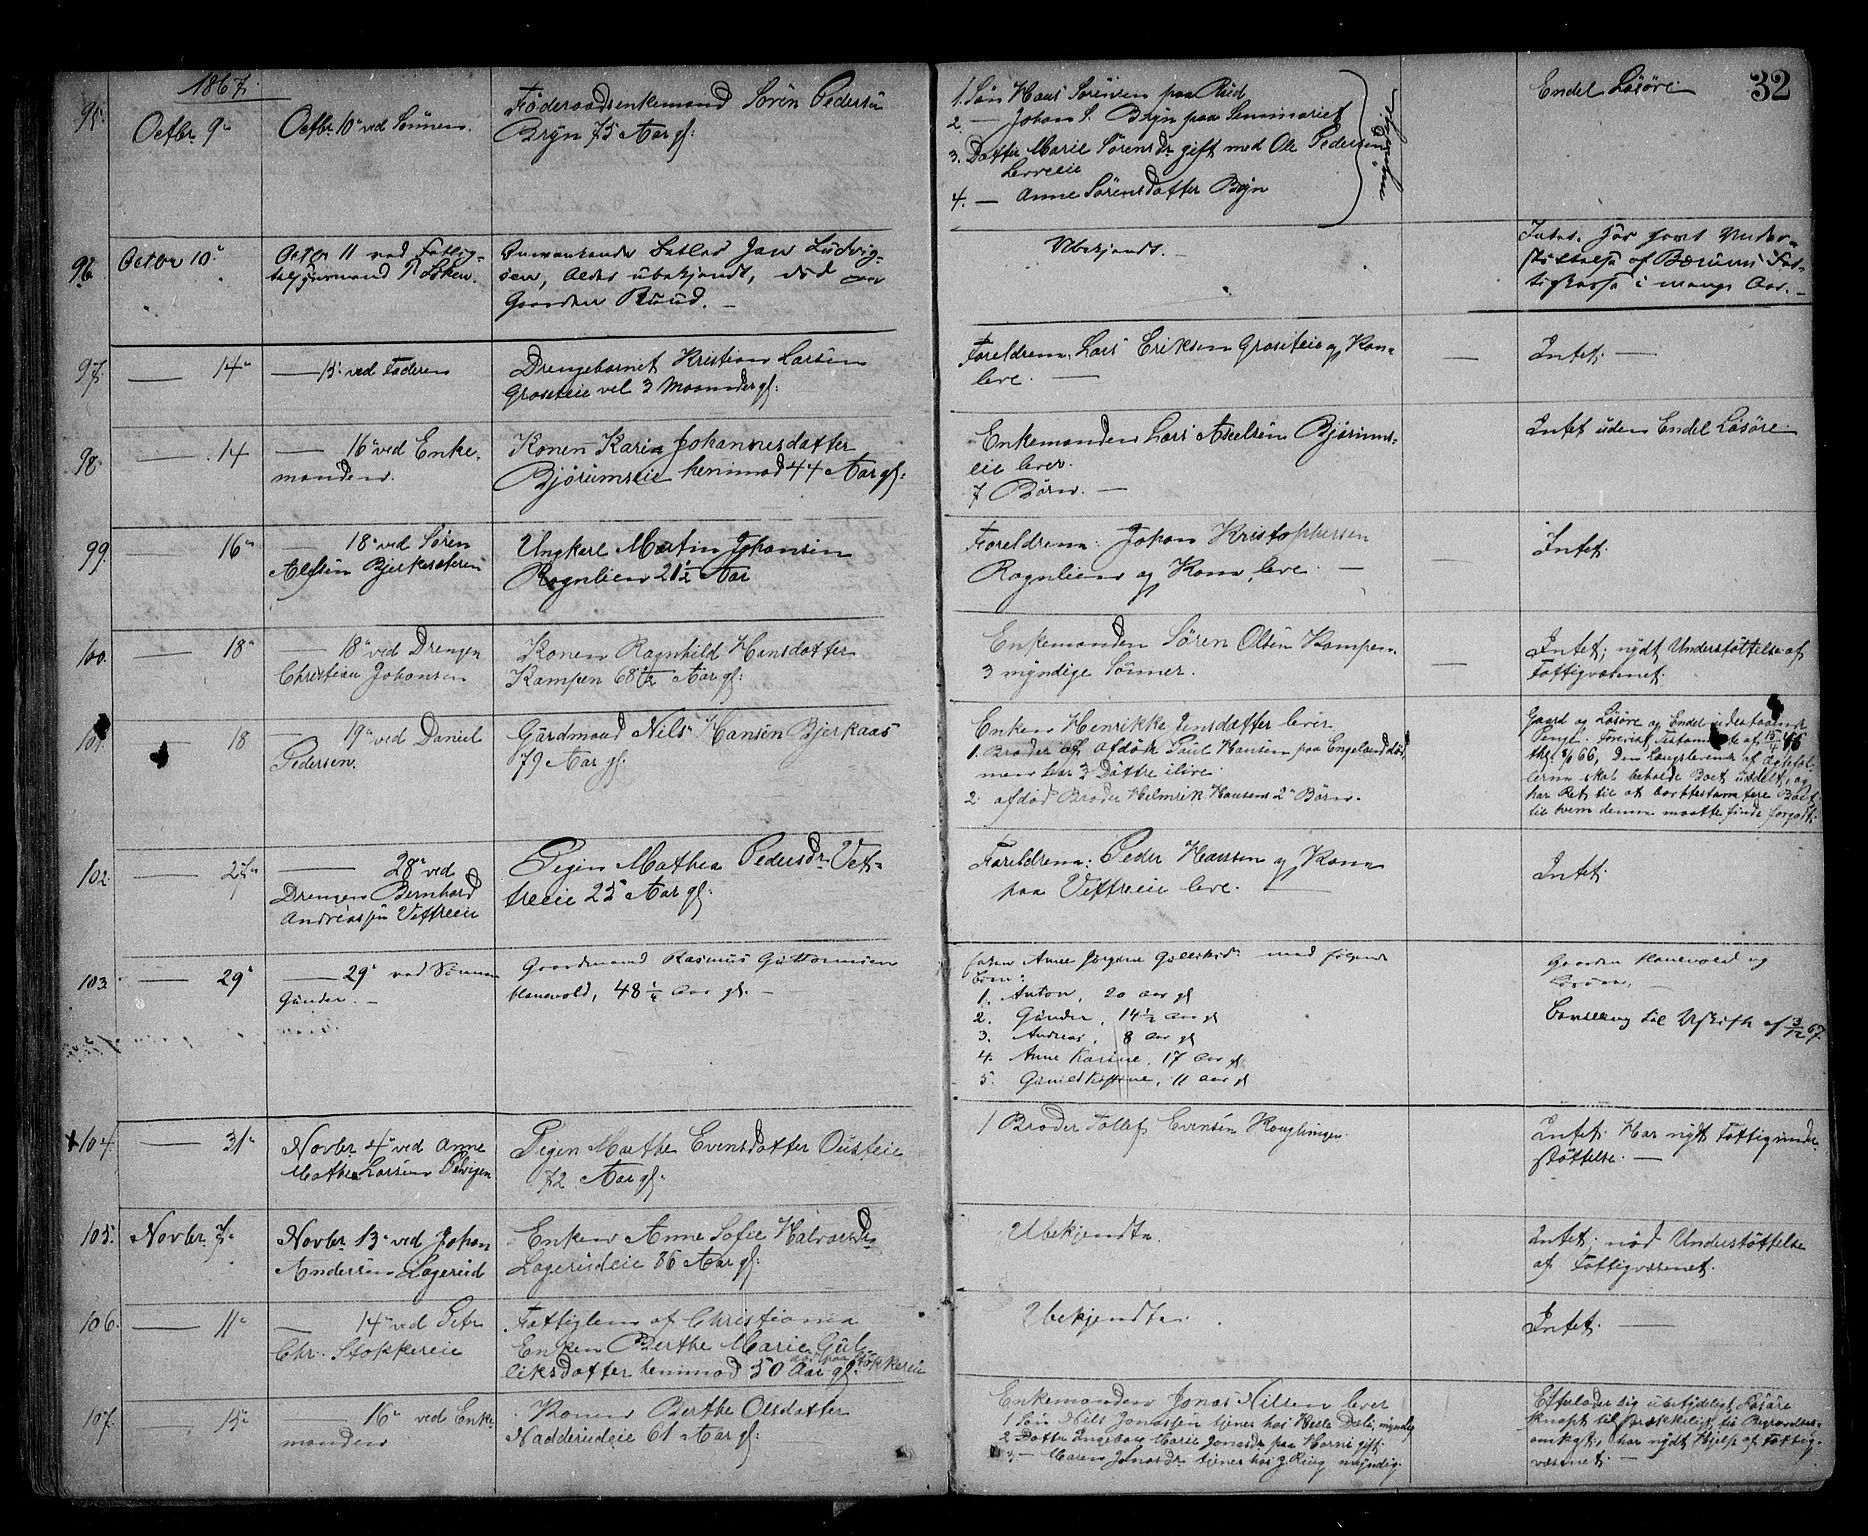 32
1867.
95.
Octbr. 9de
Octbr 10de ved Sønnen.
Føderaadsenkemand Søren Pedersen
Bryn 75 Aar gl:
1. Søn Hans Sørensen paa Rud
2. — Johan S. Bryn paa Seminariet
3. Datter Marie Sørensdr gift med Ole Pedersen
4. — Anne Sørensdatter Bryn
myndige
Endel Løsøre
96
Octbr 10de
Octbr 11 ved Fattig-
Omvankende Jan Ludvig-
sen, Alder ubekjendt, død paa
Gaarden Ruud. —
Ubekjendt. —
Intet. Har faaet Under-
støttelse af Bærums Fat-
tigkasse i mange Aar. —
97.
— 14de
— 15de ved Faderen
Drengebarnet Kristian Larsen
Groseteie vel 3 Maaneder gl:
Foreldrene: Lars Eriksen Groseteie og Kone
leve. —
—
Intet. —
98.
— 14
— 16de ved Enke-
manden.
Konen Karin Johannesdatter
Bjørumseie henimod 44 Aar gl:
Enkemanden Lars Axelsen Bjørums-
eie lever.
7 Børn. —
—
Intet uden Endel Løsøre.
99.
— 16de
— 18de ved Søren
Alfsen Bjerkesæteren
Ungkarl Martin Johansen
Rognlien 21½ Aar
Foreldrene: Johan Kristophersen
Rognlien og Kone, leve. —
—
Intet.
100.
— 18de
— 18de ved Drengen
Christian Johansen
Konen Ragnhild Hansdatter
Kampen 68½ Aar gl:
Enkemanden Søren Olsen Kampen
3 myndige Sønner.
—
Intet; nydt Understøttelse af
Fattigvæsenet.
101.
— 18
— 19de ved Daniel
Pedersen.
Gårdmand Nils Hansen Bjerkaas
79 Aar gl:
Enken Henrikke Jensdatter lever
1. Broder af afdøde Poul Hansen paa Engelsrud død,
man har 3 Døttre ilive.
2. afdød Broder Helmrik Hansens 2de Børn.
Gaard og Løsøre og Endel udestaaende
Penge. Forevist Testamente af 15/4 46
thgl. 66, Den Længstlevende af Ægtefol-
kene skal beholde Boet udelt, og
har Ret til at borttestamentere Boet
til hvem denne maatte finde forgodt.
102.
— 27de
— 28de ved
Drengen Bernhard
Andreassen Vettreeie
Pigen Mathea Pedersdr Vet-
treeie 25 Aar gl:
Foreldrene: Peder Hansen og Kone
paa Vettreeie leve. —
Intet.
103.
— 29de
— 29de ved Sønnen
Gunder. —
Gaardmand Rasmus Guttormsen
Hanevold, 48¼ Aar gl. —
Enken Anne Jørgine Gulliksd. med følgende
Børn:
1. Anton, 20 Aar gl
2. Gunder, 14½ Aar gl
3. Andreas, 8 Aar gl
4. Anne Karine, 17 Aar gl
5. Gunild Kirstine, 11 Aar gl
Gaarden Hanevold og
Løsøre.
Bevilling til Uskifte af 3/12 67.
+104.
— 31de
Novbr 4de ved Anne
Mathea Larsen Elvigen
Pigen Marthe Evensdatter Ousteie
72 Aar gl:
1 Broder Tollef Evensen Kauglingen.
Intet. Har nydt Fattigunder-
støttelse. —
105.
Novbr. 7de
Novbr. 13de ved Johan
Andersen Lagerud
Enken Anne Sofie Halvorsdr
Lagerudeie 86 Aar gl:
Ubekjendte.
Intet. nød Understøttelse
af Fattigvæsenet.
106.
— 11de
— 14de ved Petr
Chr. Stokkereie
Fattiglem af Christiania
Enken Berthe Marie Gul-
liksdatter henimod 50 Aar gl. død paa Stokkereie
Ubekjendte.
Intet. —
107.
— 15de
— 16de ved Enke
manden
Konen Berthe Olsdatter
Nadderudeie 61 Aar gl:
Enkemanden Jonas Nilsen lever
1 Søn Nils Jonassen tjener hos Helle Dæli, myndig
2 Datter Ingeborg Marie Jonasdr paa Horni gift.
3 — Maren Jonasdr tjener hos J. Ring myndig.
Efterlader sig ubetydeligt Løsøre
knapt tilstrækkeligt til Begravelses-
omkgt, har nydt Hjelp af Fattig-
væsenet. —